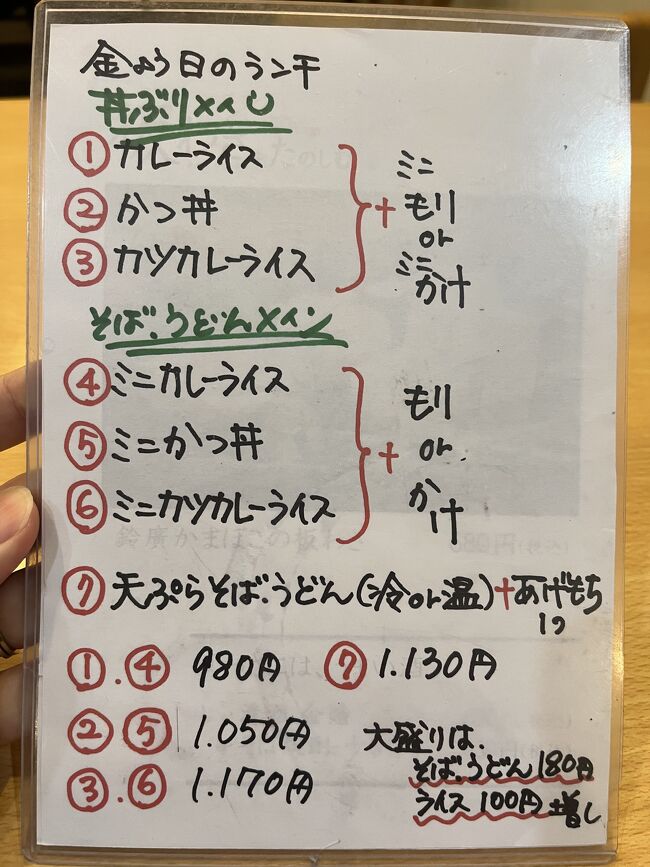 金よう日のランチ
丼ぶりメイン
① カレーライス
② かつ丼
③ カツカレーライス
+
ミニ
もり
or
ミニ
かけ
そば、うどんメイン
④ ミニカレーライス
⑤ ミニかつ丼
⑥ ミニカツカレーライス
+
もり
or
かけ
⑦ 天ぷらそば、うどん(冷or温)+あげもち
1つ
①.④ 980円 ⑦ 1.130円
② ⑤ 1.050円
③.⑥ 1.170円
大盛りは、
そば、うどん180円
ライス100円増し